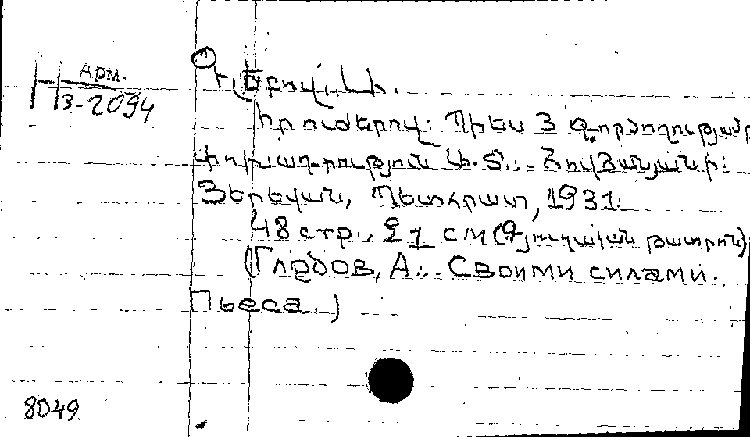 Арм.
3-2094
Գլեբով, Ա.
Իր ուժերով: Պիես 3 գործողությամբ
փոխադրություն
Յերեվան, Պետհրատ, 1931.
48 стр., 21 см (Գյուղական թատրոն)
(Глебов, А.. Своими силами.
Пьеса.)
8049